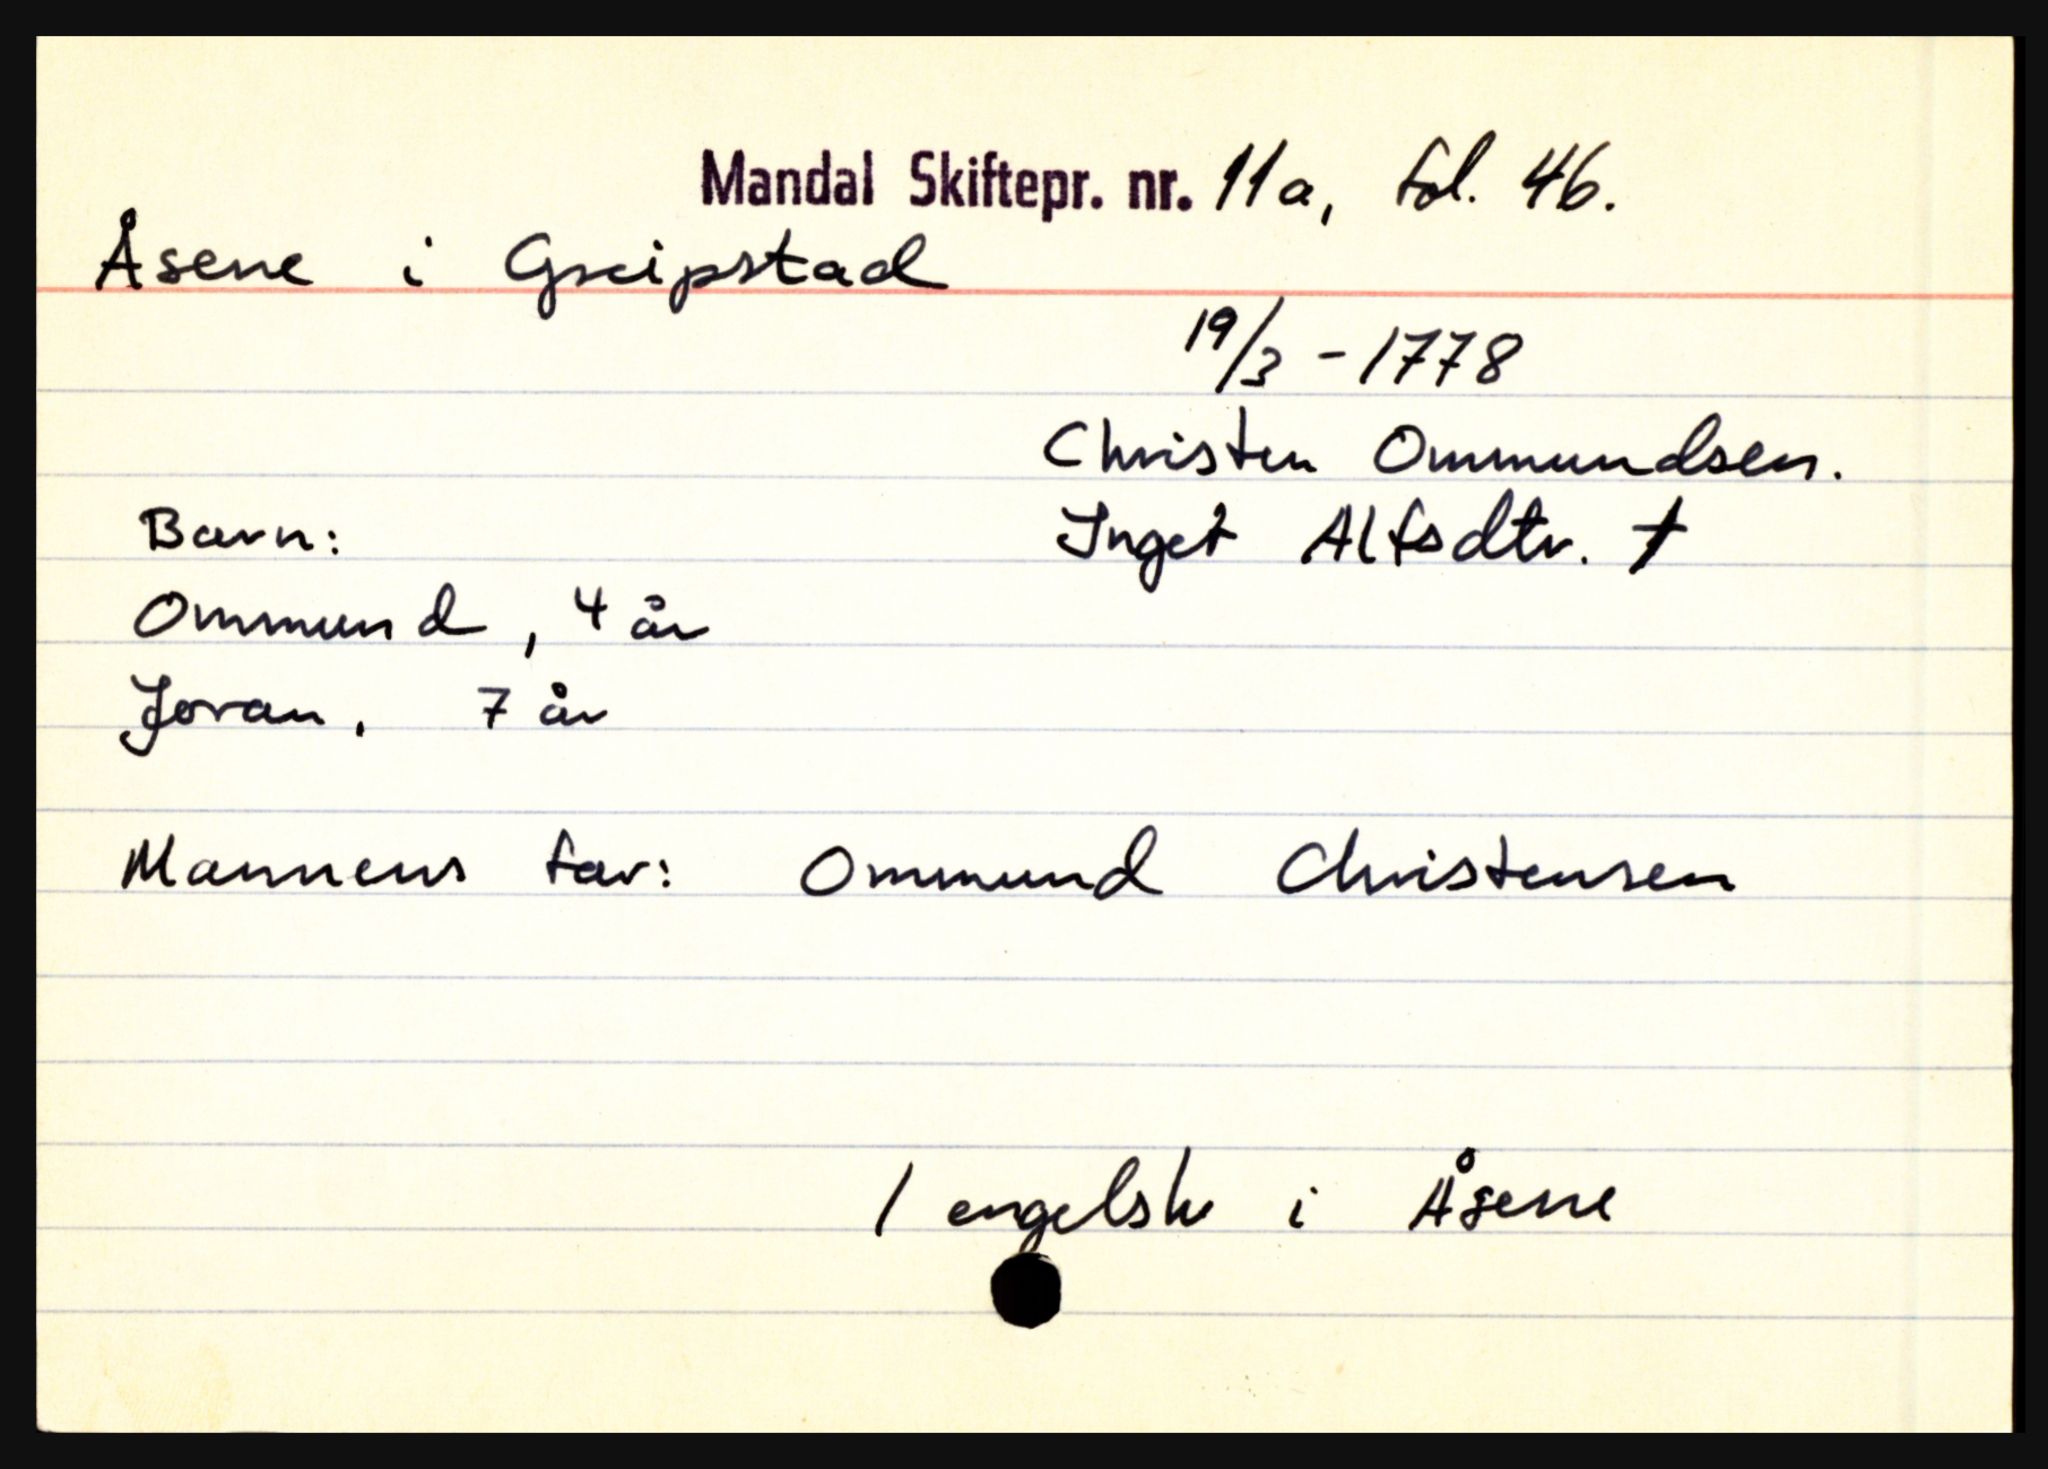 Mandal Skiftepr. nr. 11a, fol. 46.
Åsene i Greipstad
19/3 - 1778
Christen Ommundsen.
Barn:
Inget Alfsdtr. †
Ommund, 4 år
Joran, 7 år
Mannens far: Ommund Christensen
1 engelsk i Åsene